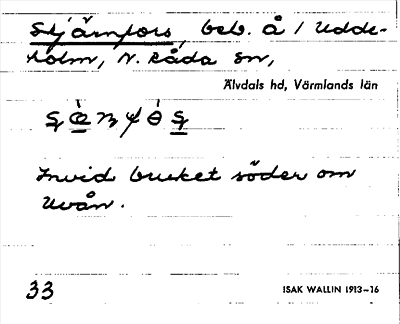 Stjärnfors, beb. Å / Udde-
holm, N. Råda sn,
Älvdals hd, Värmlands län
Invid bruket söder om
Uvån.
33 ISAK WALLIN 1913–16